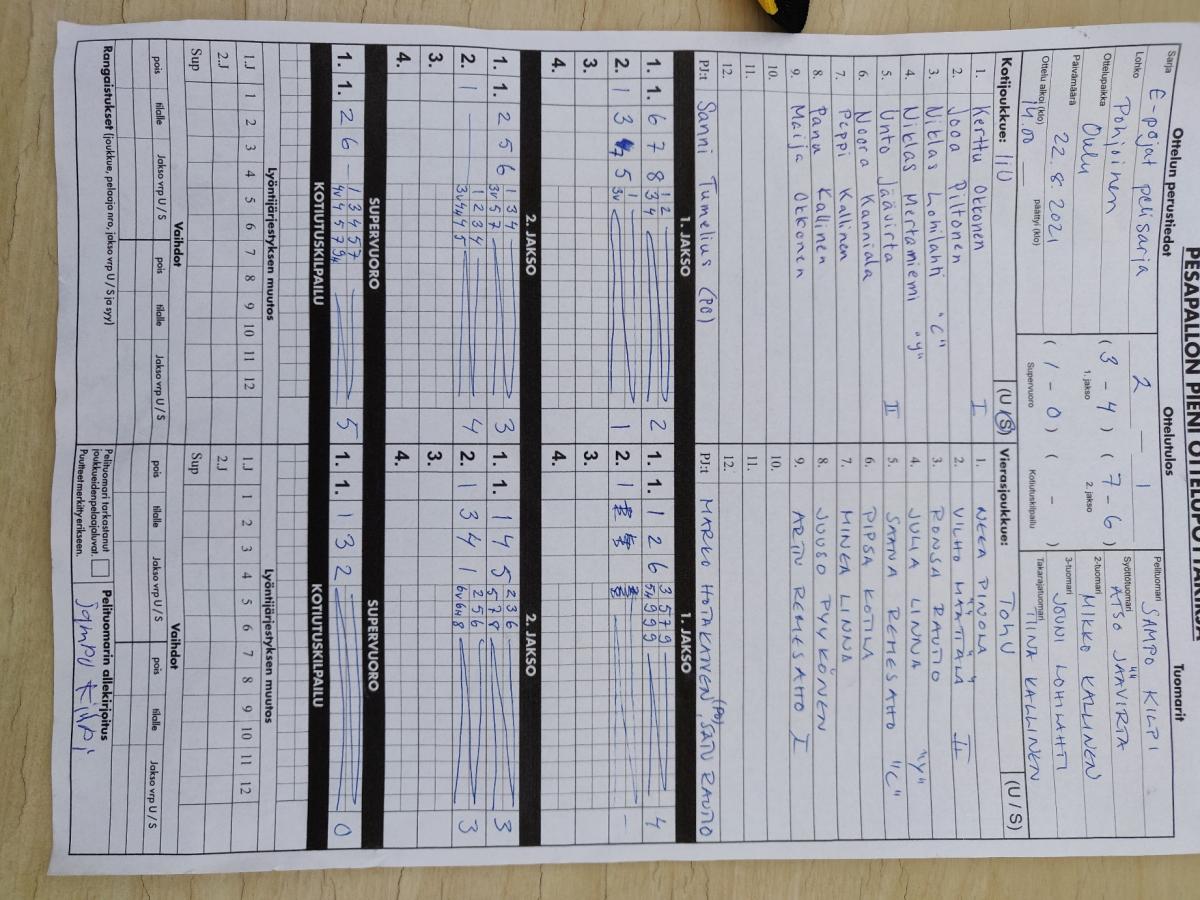 PESÄPALLON PIENI OTTELUPÖYTÄKIRJA
Ottelun perustiedot
Sarja E-pojat pelisarja
Lohko Pohjoinen
Ottelupaikka Oulu
Päivämäärä 22.8.2021
Ottelu alkoi (klo) 14.00 päättyi (klo)
Ottelutulos
2 — 1
(3 - 4) (7 - 6)
1. jakso 2. jakso
(1 - 0) ( - )
Supervuoro Kotiutuskilpailu
Tuomarit
Pelituomari SAMPO KILPI
Syöttötuomari ATSO JÄÄVIRTA
2-tuomari MIKKO KALLINEN
3-tuomari JOUNI LOHILAHTI
Takarajatuomari TIINA KALLINEN
Kotijoukkue: IiU (U / S)
1. Kerttu Otkonen I
2. Jooa Piltonen
3. Niklas Lohilahti "C"
4. Niklas Mertaniemi "y"
5. Unto Jäävirta II
6. Noora Kanniala
7. Peppi Kallinen
8. Panu Kallinen
9. Maija Otkonen
10.
11.
12.
PJ:t Sanni Tumelius (PO)
Vierasjoukkue: TOHU (U / S)
1. NEEA PINOLA
2. VILHO MÄÄTTÄLÄ II
3. RONJA RAUTIO
4. JULIA LINNA "Y"
5. SAANA REMESAHO "C"
6. PIPSA KOTILA
7. MINEA LINNA
8. JUUSO PYYKÖNEN
9. ARTTU REMESAHO I
10.
11.
12.
PJ:t MARKO HOTAKAINEN (PO), SATU RAUTIO
1. JAKSO 1. JAKSO
1. 1. 6 7 8 1 2 3 4 2
2. 1 3 5 1 3v 1
3.
4.
1. 1. 1 2 6 3 5 7 9 5H 9 9 9 4
2. 1 -
3.
4.
2. JAKSO 2. JAKSO
1. 1. 2 5 6 1 3 4 3v 5 7 3
2. 1 1 2 3 4 3v 4H 4 5 4
3.
4.
1. 1. 1 4 5 2 3 6 5 7 8 3
2. 1 3 4 1 2 5 6 6v 6H 8 3
3.
4.
SUPERVUORO SUPERVUORO
1. 1. 2 6 - 1 3 4 5 7 4v 4 5 7 9H 5
1. 1. 1 3 2 0
KOTIUTUSKILPAILU KOTIUTUSKILPAILU
Lyöntijärjestyksen muutos Lyöntijärjestyksen muutos
1.J 1 2 3 4 5 6 7 8 9 10 11 12
2.J
Sup
1.J 1 2 3 4 5 6 7 8 9 10 11 12
2.J
Sup
Vaihdot Vaihdot
pois tilalle Jakso vrp U / S pois tilalle Jakso vrp U / S
pois tilalle Jakso vrp U / S pois tilalle Jakso vrp U / S
Rangaistukset (joukkue, pelaaja nro, jakso vrp U / S ja syy)
Pelituomari tarkastanut
joukkueiden pelaajaluvat.
Puutteet merkitty erikseen.
Pelituomarin allekirjoitus
Sampo Kilpi